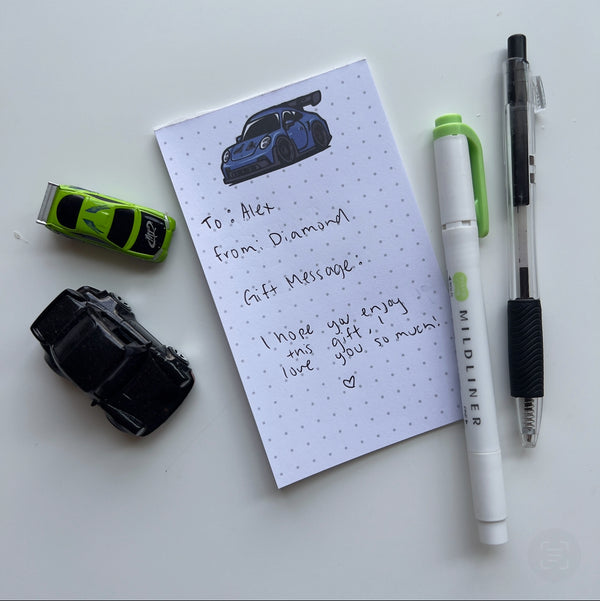 To: Alex
from: Diamond
Gift Message:
I hope you enjoy
this gift, I
love you so much!
MILDLINER